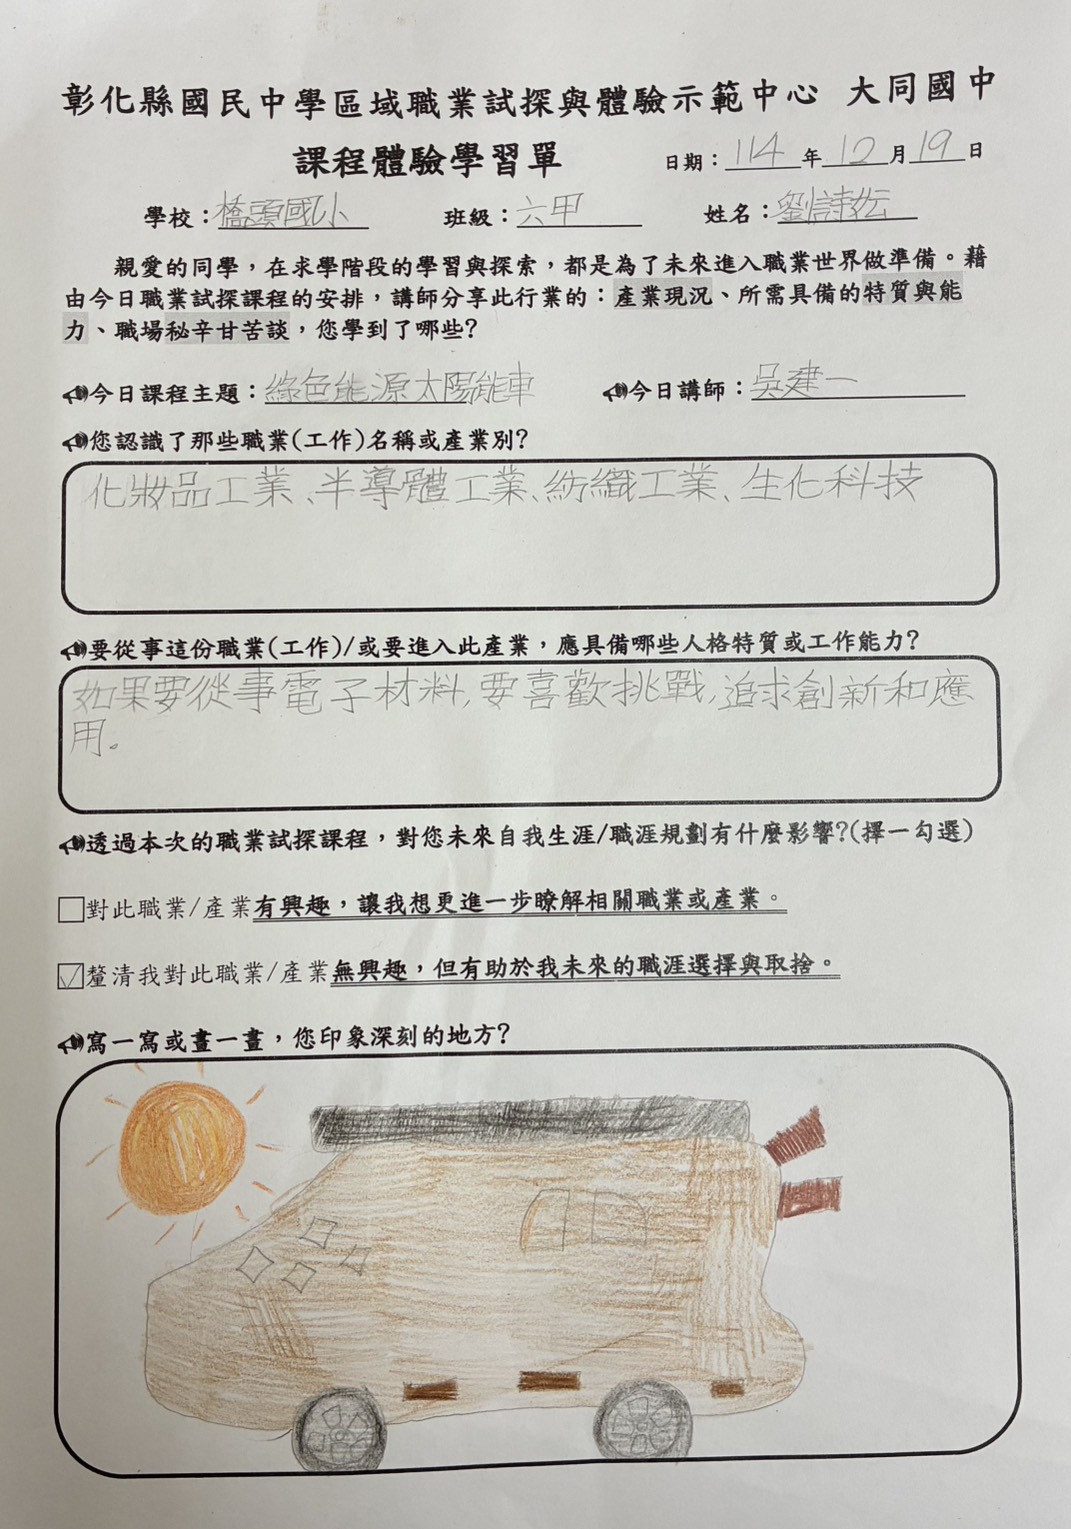 彰化縣國民中學區域職業試探與體驗示範中心 大同國中
課程體驗學習單 日期：114年12月19日
學校：橋頭國小 班級：六甲 姓名：劉詩妘
親愛的同學，在求學階段的學習與探索，都是為了未來進入職業世界做準備。藉
由今日職業試探課程的安排，講師分享此行業的：產業現況、所需具備的特質與能
力、職場秘辛甘苦談，您學到了哪些?
今日課程主題：綠色能源太陽能車 今日講師：吳建一
您認識了那些職業(工作)名稱或產業別?
化妝品工業、半導體工業、紡織工業、生化科技
要從事這份職業(工作)/或要進入此產業，應具備哪些人格特質或工作能力?
如果要從事電子材料,要喜歡挑戰,追求創新和應
用。
透過本次的職業試探課程，對您未來自我生涯/職涯規劃有什麼影響?(擇一勾選)
□對此職業/產業有興趣，讓我想更進一步瞭解相關職業或產業。
☑釐清我對此職業/產業無興趣，但有助於我未來的職涯選擇與取捨。
寫一寫或畫一畫，您印象深刻的地方?